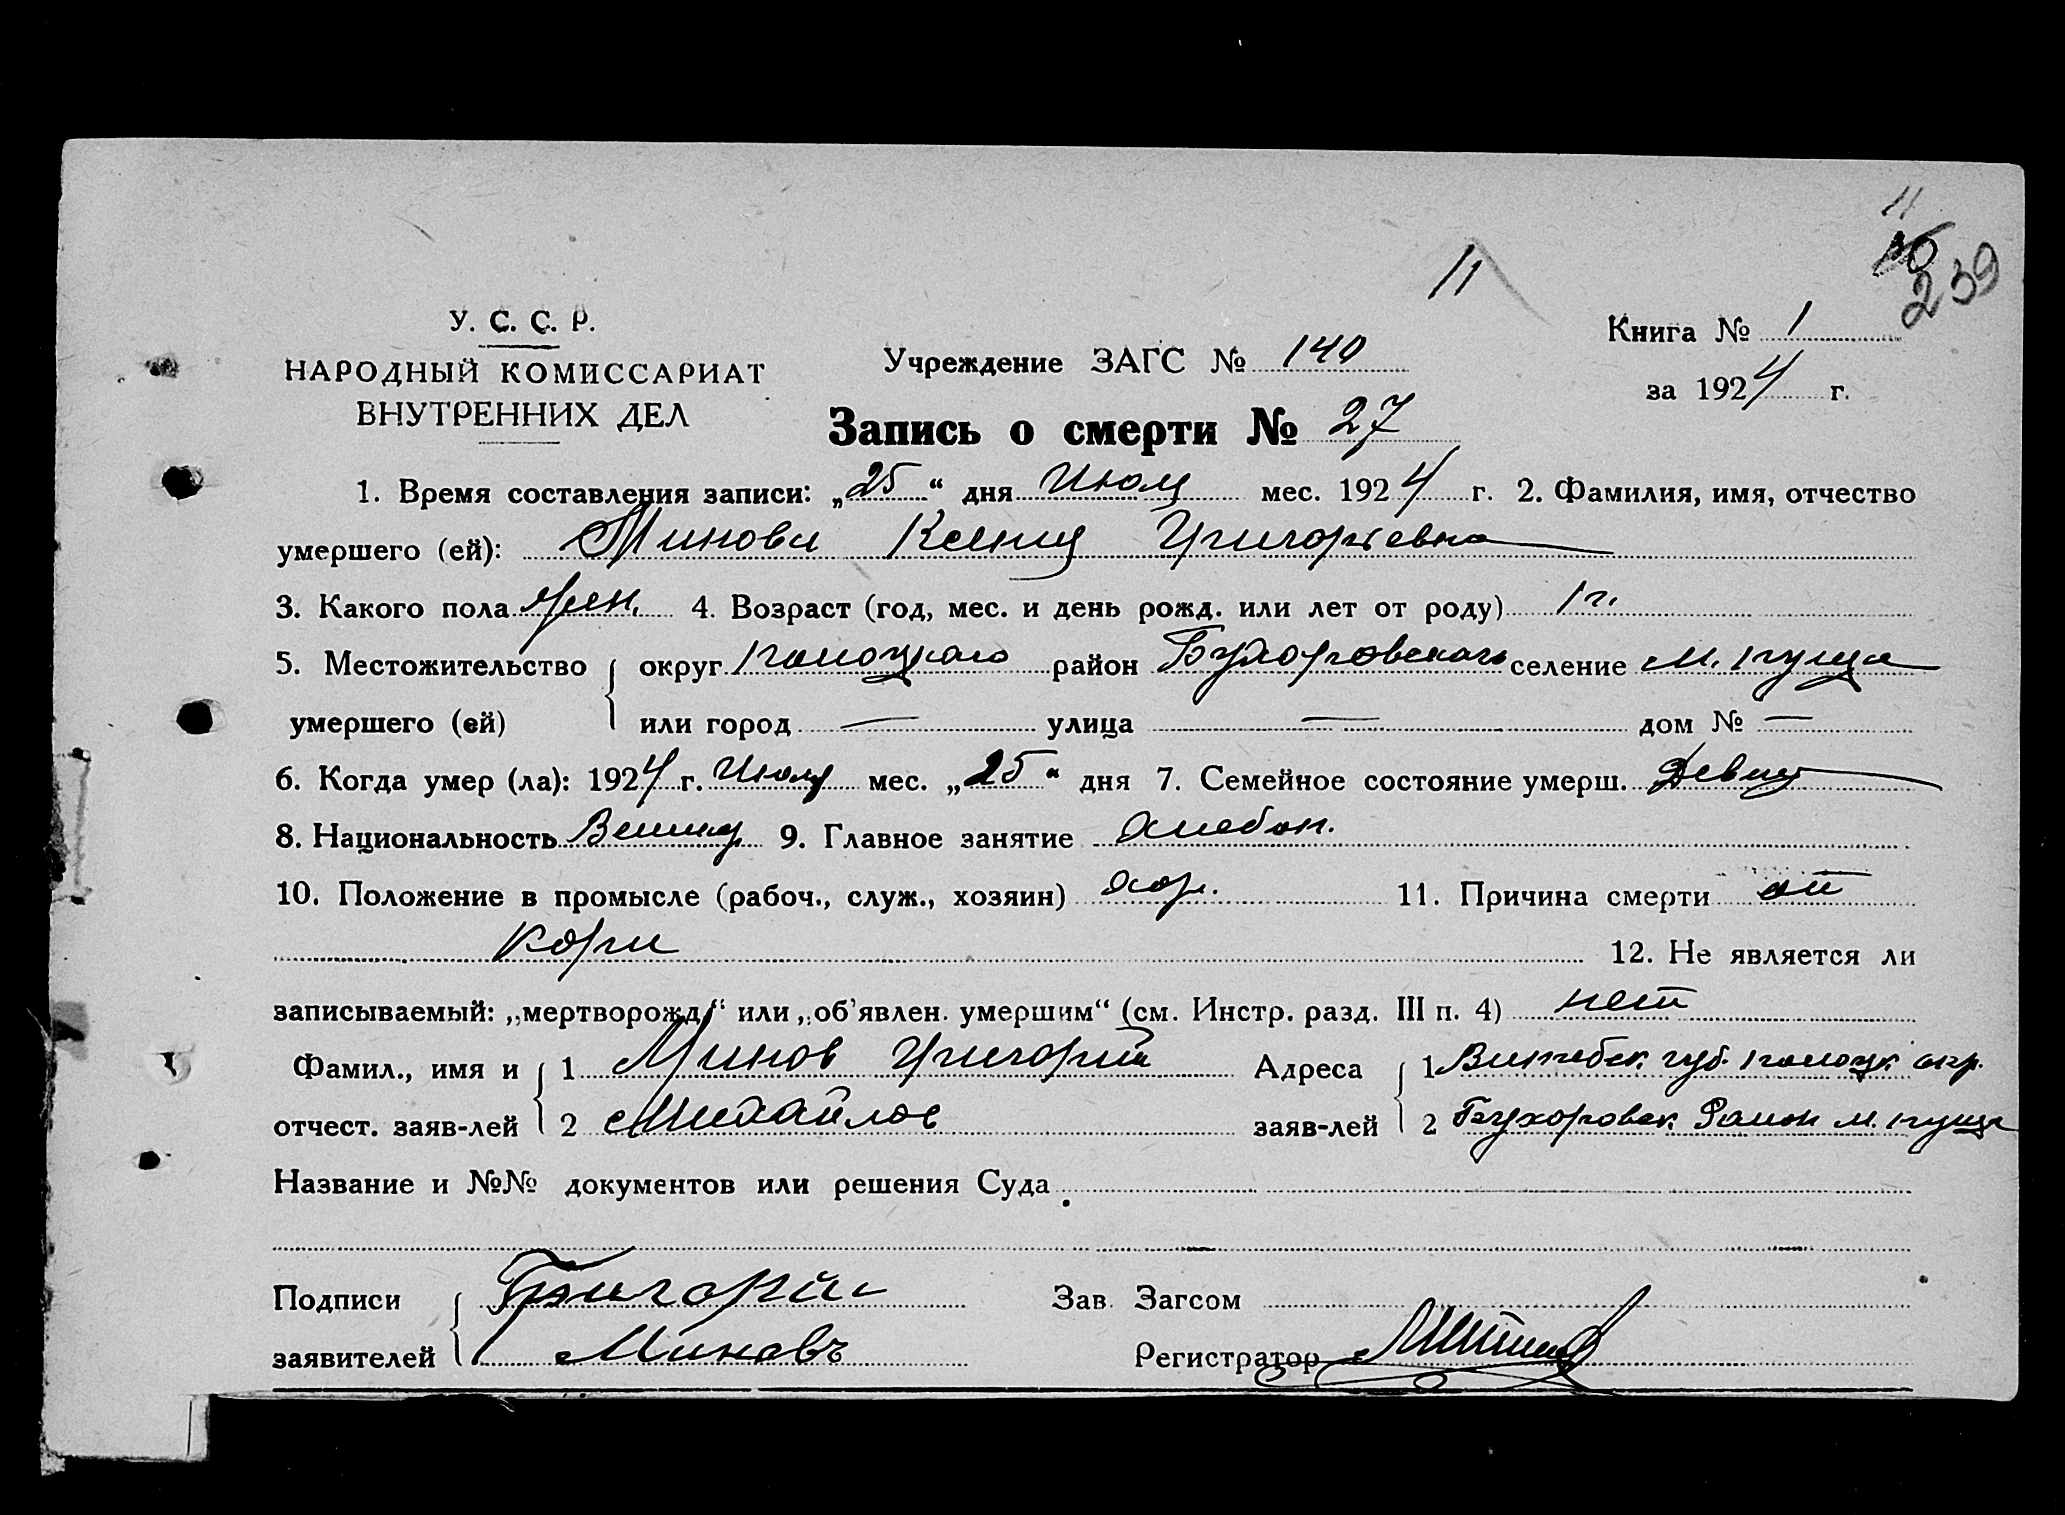 11
239
11
У. С. С. Р.
НАРОДНЫЙ КОМИССАРИАТ
ВНУТРЕННИХ ДЕЛ
Учреждение ЗАГС № 140
Книга № 1
за 1924 г.
Запись о смерти № 27
1. Время составления записи: „25“ дня Июля мес. 1924 г. 2. Фамилия, имя, отчество
умершего (ей): Минова Ксения Григорьевна
3. Какого пола жен. 4. Возраст (год, мес. и день рожд. или лет от роду) 1 г.
5. Местожительство округ Полоцкого район селение М. Пуща
умершего (ей) или город — улица — дом № —
6. Когда умер (ла): 1924 г. Июля мес. „25“ дня 7. Семейное состояние умерш. Девица
8. Национальность 9. Главное занятие Хлебоп.
10. Положение в промысле (рабоч., служ., хозяин) 11. Причина смерти от
кори 12. Не является ли
записываемый: „мертворожд.“ или „об’явлен. умершим“ (см. Инстр. разд. III п. 4) нет
Фамил., имя и 1 Минов Григорий Адреса 1 Витебск. губ. Полоцк. окр.
отчест. заяв-лей 2 Михайлов заяв-лей 2 Район м. Пуща
Название и №№ документов или решения Суда
Подписи Григорий Зав. Загсом
заявителей Миновъ Регистратор